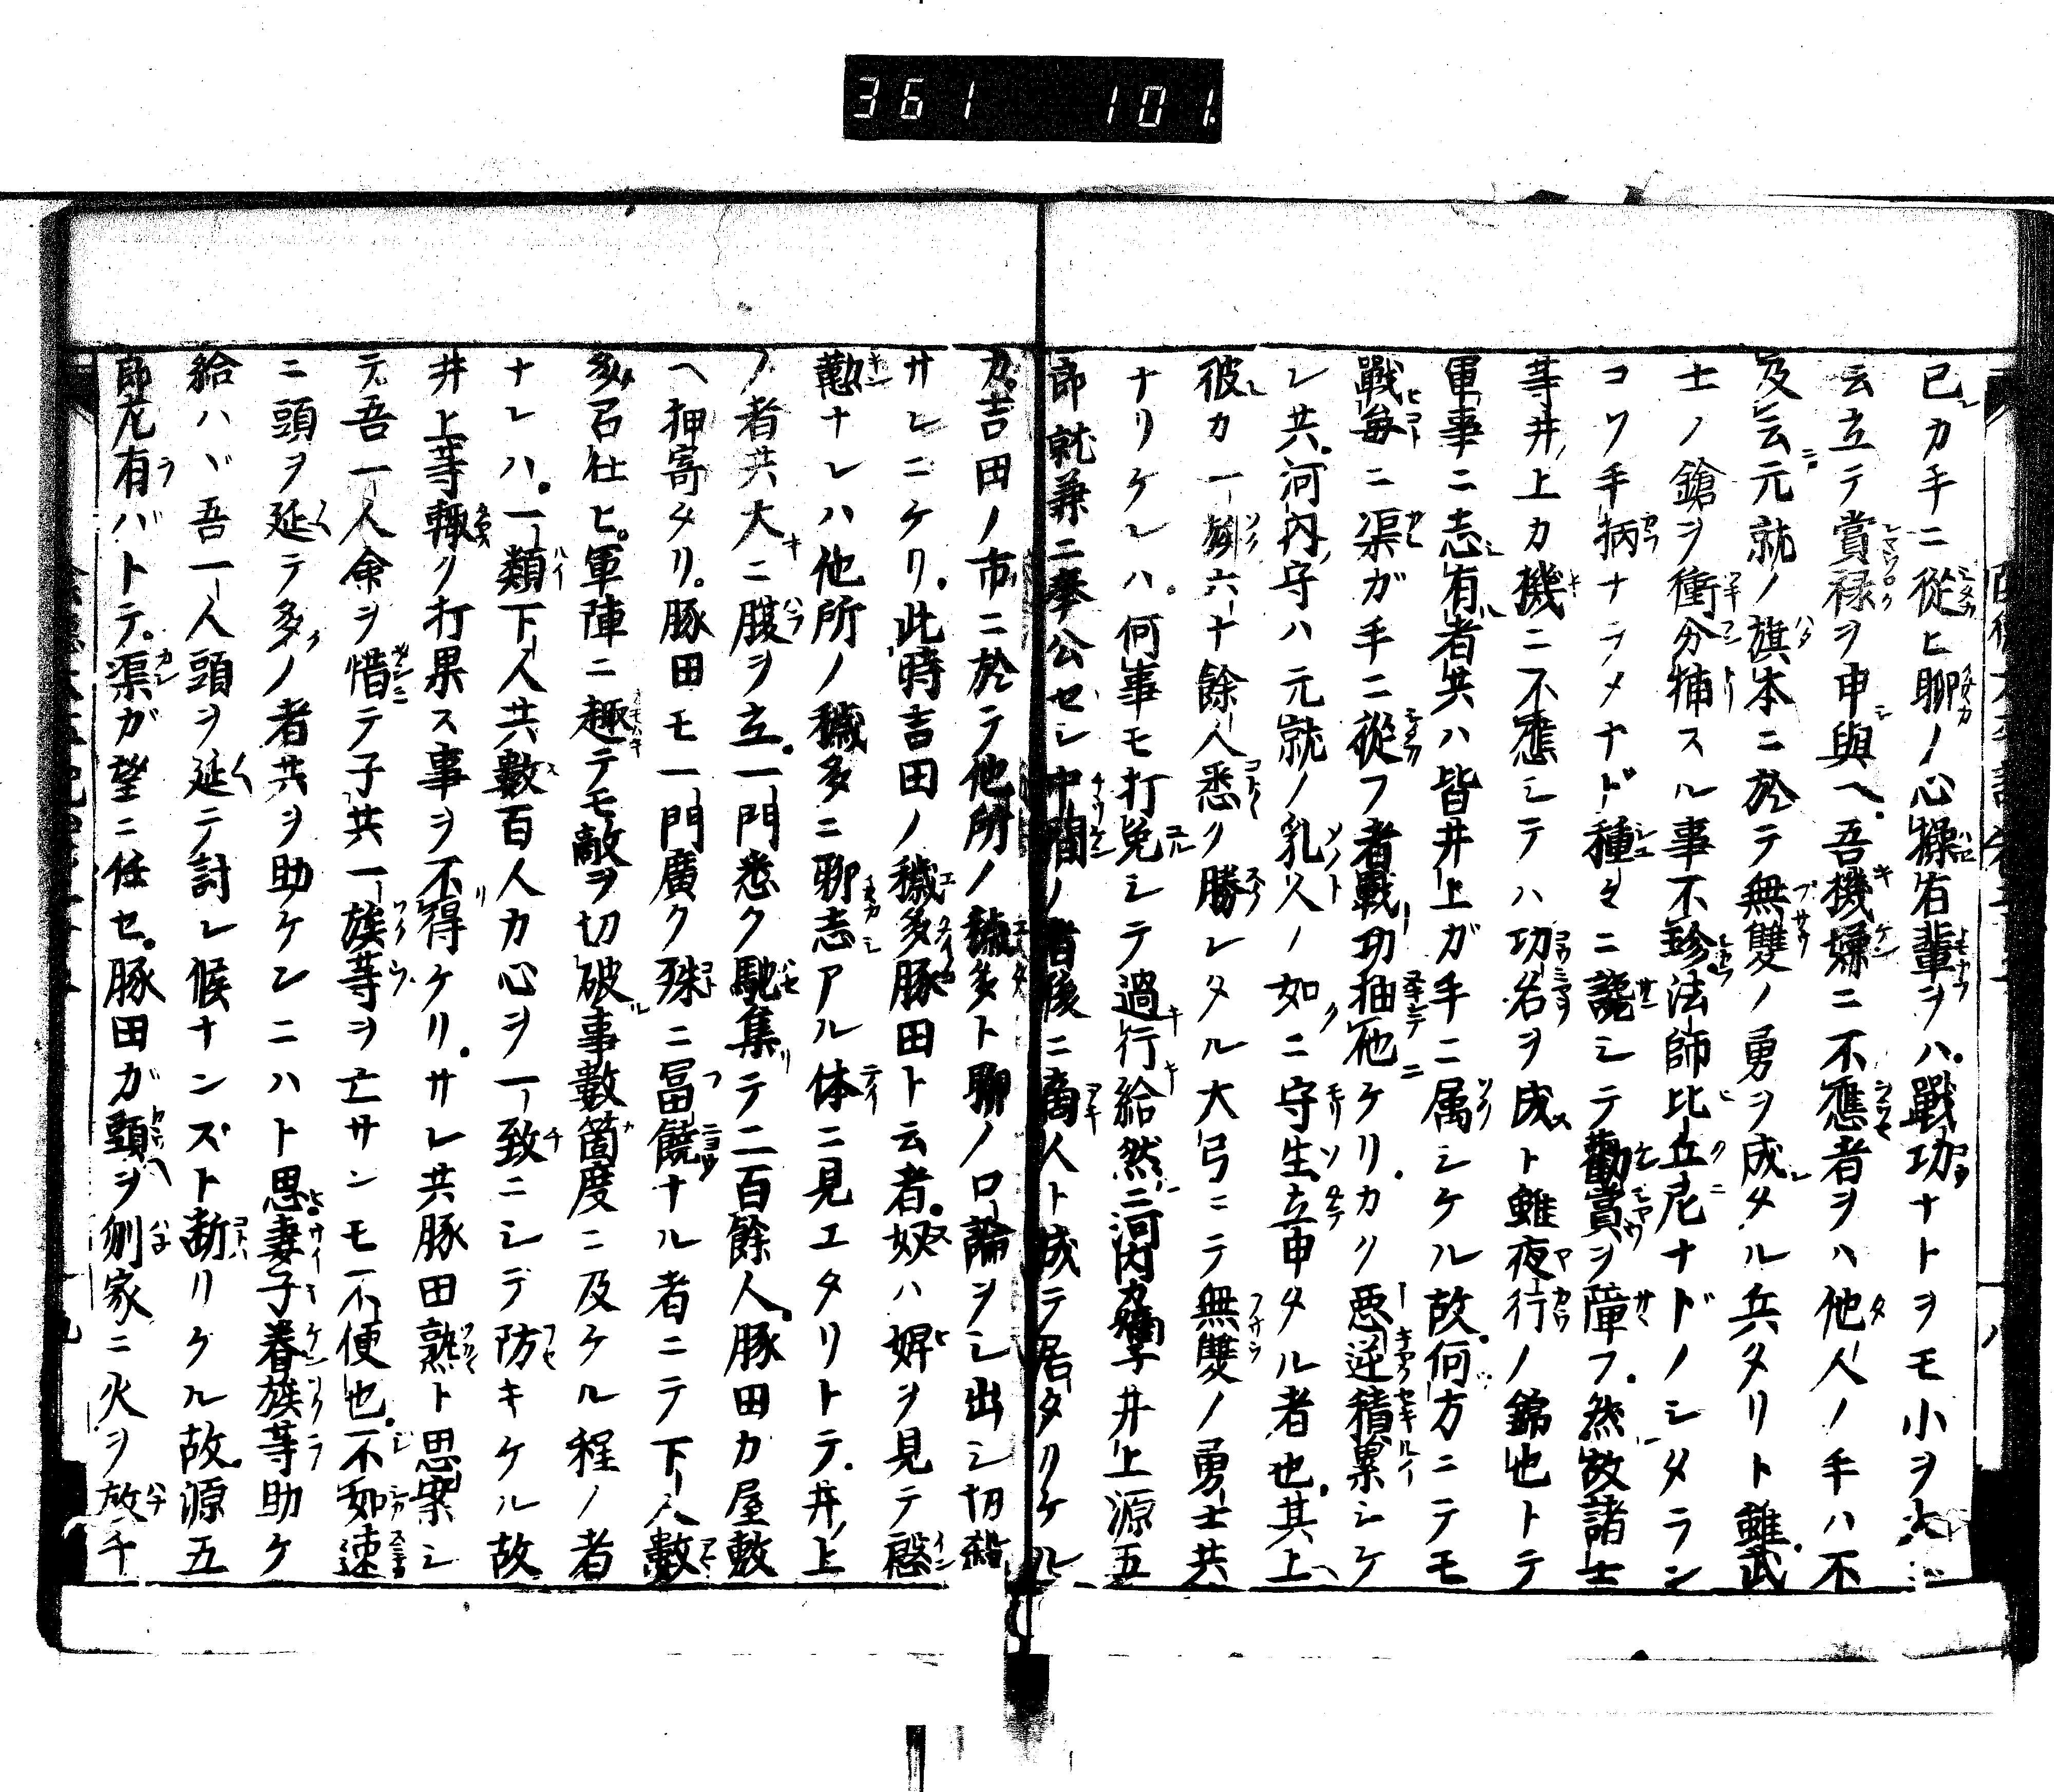 361 101.
已カ手ニ從ヒ聊ノ心操有輩ヲハ。戰功ナトヲモ小ヲ大ニ
云立テ賞禄ヲ申與ヘ。吾機嫌ニ不應者ヲハ他人ノ手ハ不
及云元就ノ旗本ニ於テ無雙ノ勇ヲ成タル兵タリト雖。武
士ノ鎗ヲ衝分捕スル事不珍法師比丘尼ナドノシタラン
コソ手柄ナラメナド種々ニ讒シテ勸賞ヲ障フ。然故諸士
等井上カ機ニ不應シテハ功名ヲ成ト雖夜行ノ錦也トテ
軍事ニ志有者共ハ皆井上ガ手ニ属シケル故。何方ニテモ
戰毎ニ渠ガ手ニ從フ者戰功抽他ケリ。カクノ悪逆積累シケ
レ共。河内守ハ元就ノ乳父ノ如ニ守生立申タル者也。其上
彼カ一族六十餘人悉ク勝レタル大弓ニテ無雙ノ勇士共
ナリケレハ。何事モ打免シテ過行給。然ニ河内カ嫡子井上源五
郎就兼ニ奉公セシ中間ノ者後ニ商人ト成テ居タリケル
カ。吉田ノ市ニ於テ他所ノ穢多ト聊ノ口論ヲシ出シ切殺
サレニケリ。此時吉田ノ穢多豚田ト云者。奴ハ婢ヲ見テ慇
懃ナレハ他所ノ穢多ニ聊志アル体ニ見エタリトテ。井上
ノ者共大ニ腹ヲ立。一門悉ク馳集テ二百餘人。豚田カ屋敷
ヘ押寄タリ。豚田モ一門廣ク殊ニ冨饒ナル者ニテ下人數
多召仕ヒ。軍陣ニ趣テモ敵ヲ切破事數箇度ニ及ケル程ノ者
ナレハ。一類下人共數百人カ心ヲ一致ニシテ防キケル故
井上等輙ク打果ス事ヲ不得ケリ。サレ共豚田熟ト思案シ
テ吾一人命ヲ惜テ子共一族等ヲ亡サンモ不便也。不如速
ニ頭ヲ延テ多ノ者共ヲ助ケンニハト思。妻子眷族等助ケ
給ハヾ吾一人頭ヲ延テ討レ候ナンズト断リケル故。源五
郎尤有バトテ。渠ガ望ニ任セ。豚田ガ頭ヲ刎家ニ火ヲ放千